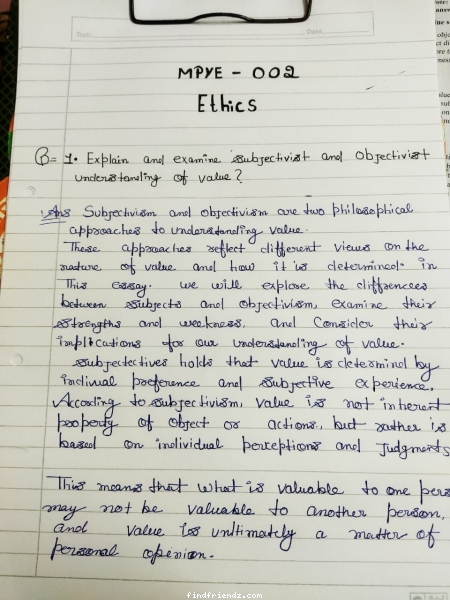 Topic
Date
MPYE - 002
Ethics
Q= 1. Explain and examine subjectivist and Objectivist
understanding of value?
Ans Subjectivism and objectivism are two philosophical
approaches to understanding value.
These approaches reflect different views on the
nature of value and how it is determined. in
This essay. we will explore the diffrences
between subjects and objectivism, examine their
strengths and weakness, and Consider their
implications for our understanding of value.
subjectectives holds that value is determind by
indivual preference and subjective experience.
According to subjectivism, value is not inherent
property of object or actions, but rather is
based on individual perceptions and Judgments
This means that what is valuable to one pers
may not be valuable to another person,
and value is unltimately a matter of
personal openion.
findfriendz.com